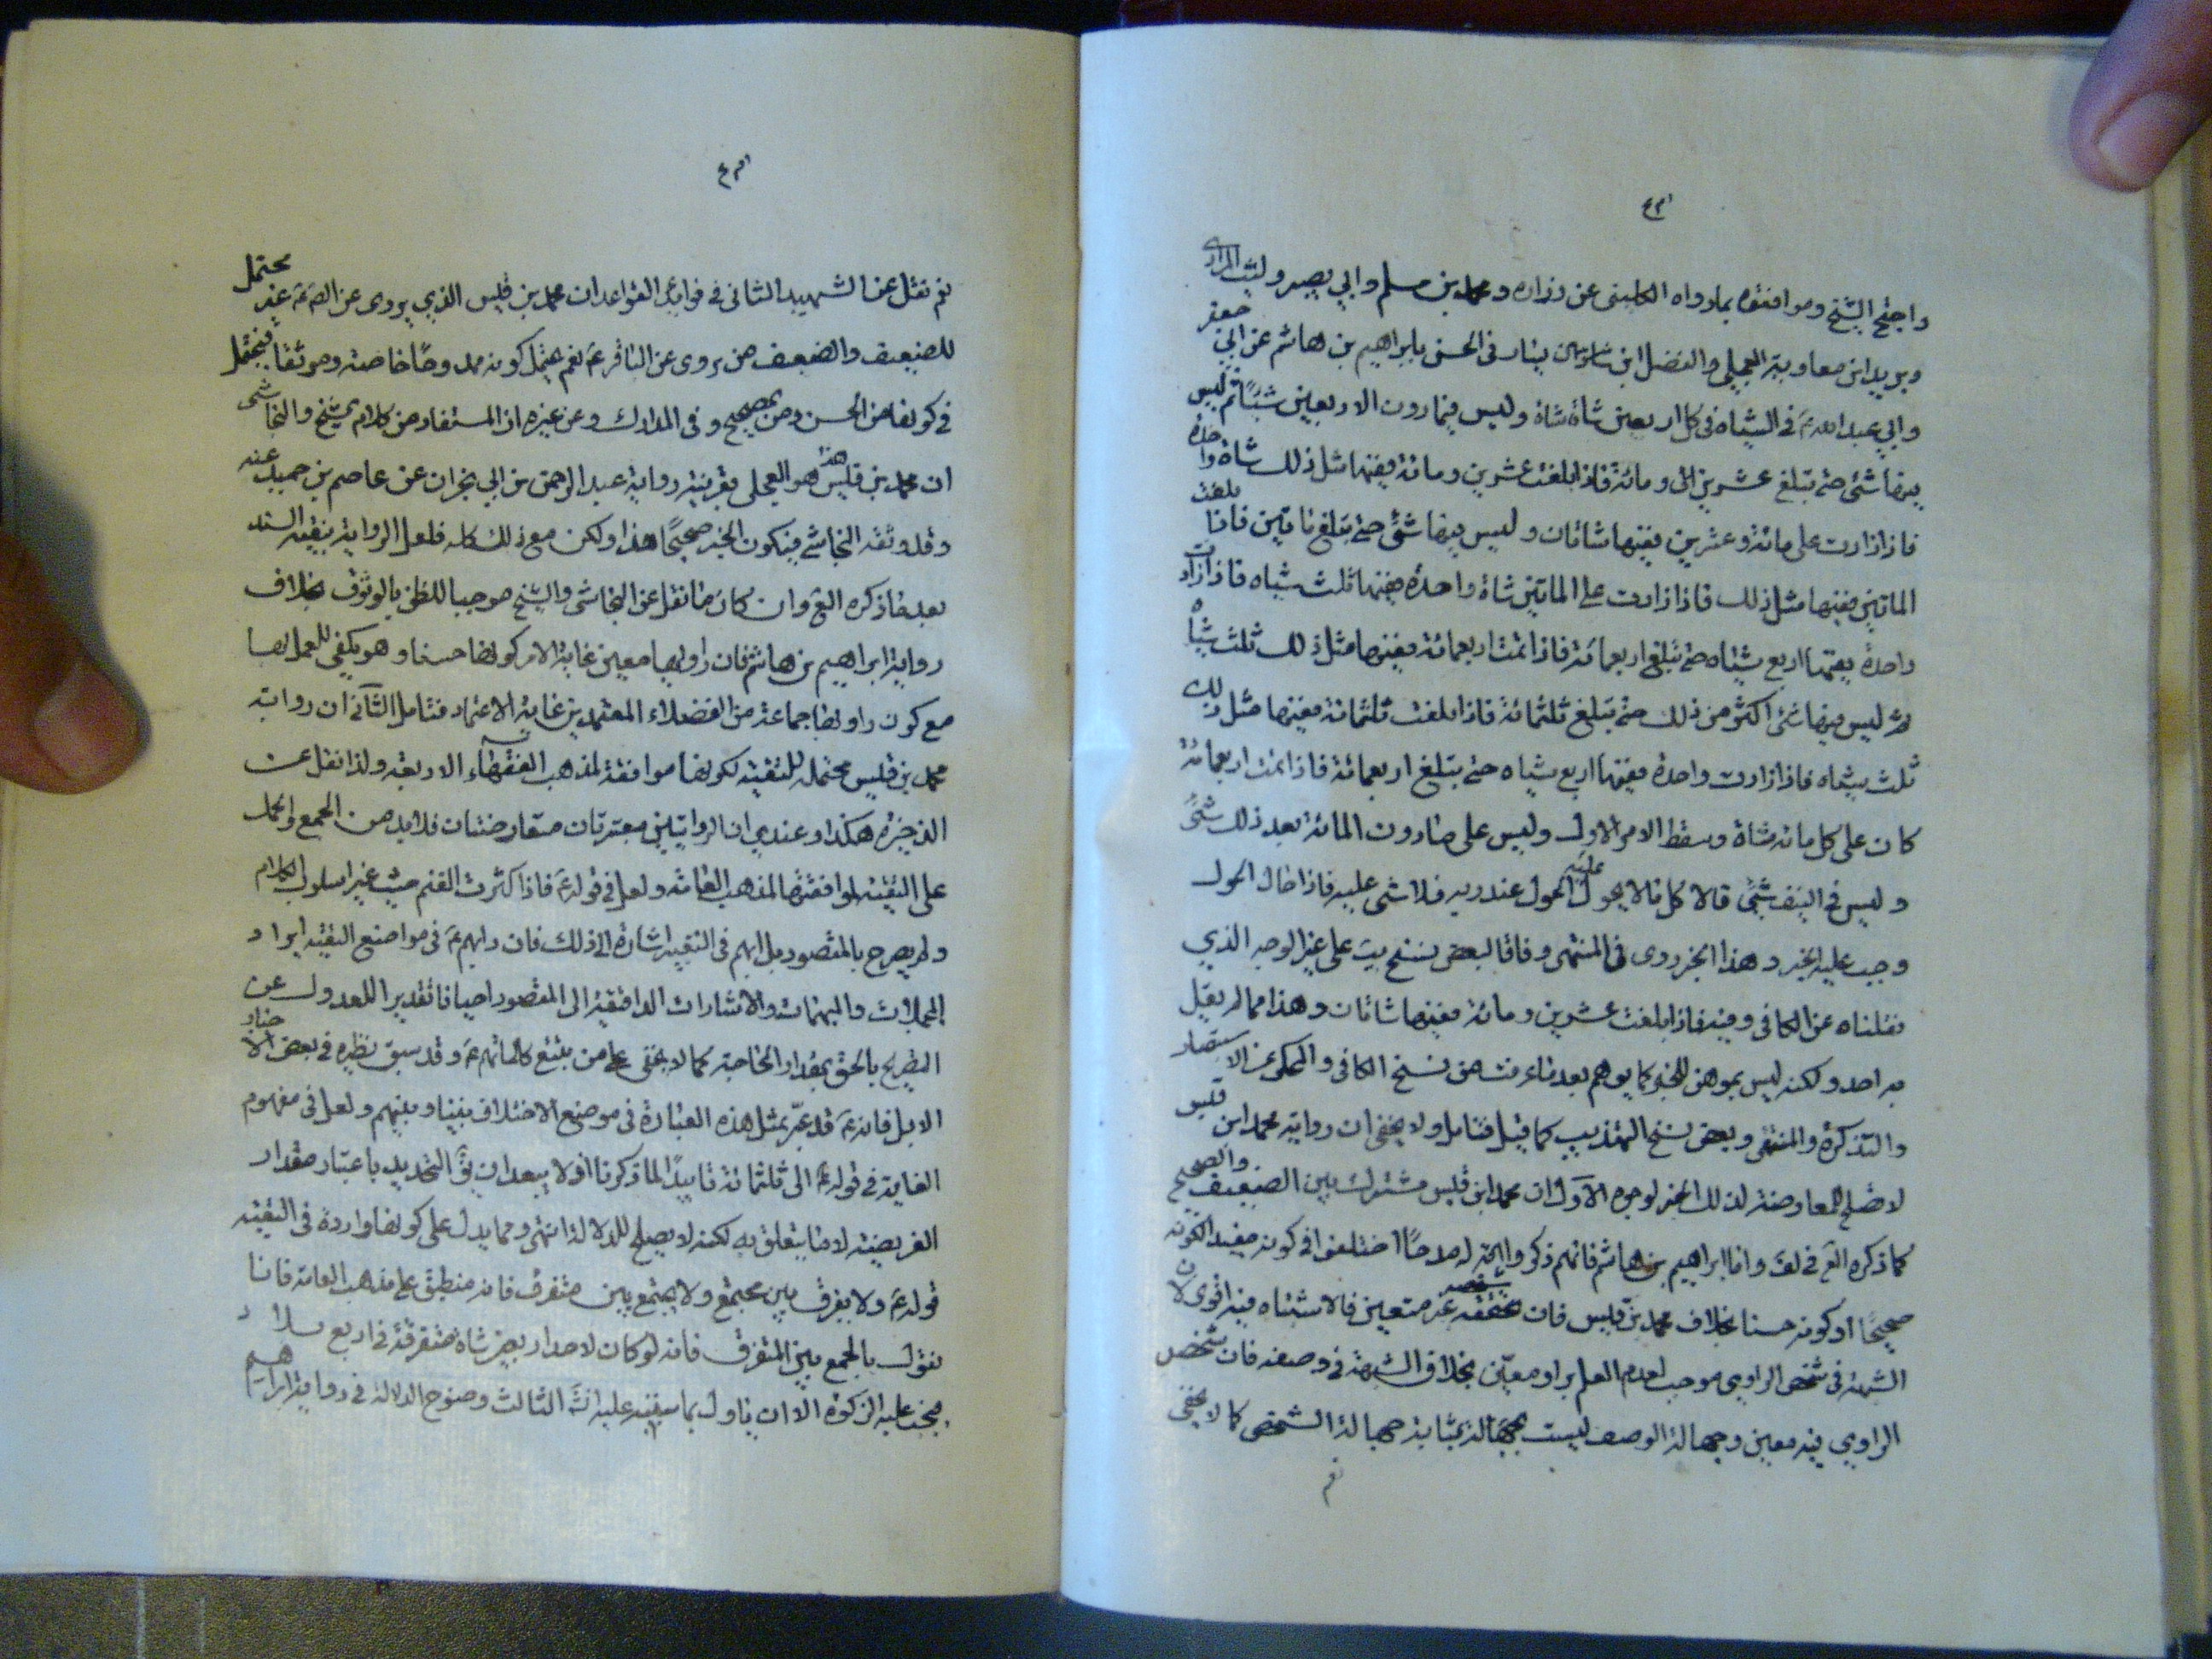 واحتج الشيخ وموافقوه بما رواه الكليني عن زراره ومحمد بن مسلم وابي بصير وليث المرادي
وبريد ابن معاوية العجلي والفضل ابن يسار في الحسن بابراهيم بن هاشم عن ابي جعفر
وابي عبد الله ع في الشياه في كل اربعين شاة شاة وليس فيما دون الاربعين شيئا ثم ليس
فيها شئ حتى تبلغ عشرين ومائة فاذا بلغت عشرين ومائة ففيها مثل ذلك شاة واحدة
فاذا زادت على مائة وعشرين ففيها شاتان وليس فيها شئ حتى تبلغ مأتين فاذا بلغت
المأتين ففيها مثل ذلك فاذا زادت على المأتين شاة واحدة ففيها ثلث شياه فاذا زادت
واحدة ففيها اربع شياه حتى تبلغ اربعمائة فاذا تمت اربعمائة ففيها مثل ذلك ثلث شياه
ثم ليس فيها شئ اكثر من ذلك حتى تبلغ ثلثمائة فاذا بلغت ثلثمائة ففيها مثل ذلك
ثلث شياه فاذا زادت واحدة ففيها اربع شياه حتى تبلغ اربعمائة فاذا تمت اربعمائة
كان على كل مائة شاة وسقط الامر الاول وليس على مادون المائة بعد ذلك شئ
وليس في النيف شئ قالا كل مالا يحول عليه الحول عند ربه فلا شئ عليه فاذا حال الحول
وجب عليه الخبر وهذا الخبر روى في المنتهى وفاقا لبعض نسخ يب على غير الوجه الذي
نقلناه عن الكافي وفيه فاذا بلغت عشرين ومائة ففيها شاتان وهذا مما لم يقل
به احد ولكنه ليس بموهن للخبر كما يوهم بعد من نسخ الكافي والمحكى عن الاستبصار
والتذكرة والمنتهى وبعض نسخ التهذيب كما قيل فتامل ولا يخفى ان رواية محمد ابن قيس
لا تصلح لمعارضة لذلك الخبر لوجوه الاول ان محمد ابن قيس مشترك بين الضعيف والصحيح
كما ذكره الع في لف واما ابراهيم بن هاشم فانهم ذكروا له مدحا اختلفوا في كونه مفيدا لكونه
صحيحا او كونه حسنا بخلاف محمد بن قيس فان شخصه غير متعين فالاشتباه فيه اقوى لان
الشبهة في شخص الراوي موجب لعدم العلم براو معين بخلاف الشبهة في وصفه فان شخص
الراوي فيه معين وجهالة الوصف ليست بمثابة جهالة الشخص كما لا يخفى
نعم
نعم نقل عن الشهيد الثاني في فوايد القواعد ان محمد بن قيس الذي يروى عن الصه ع غير يحتمل
للضعيف والضعيف من يروى عن الباقر ع نعم يحتمل كونه ممدوحا خاصة وموثقا فيحتمل
في كونها من الحسن ومن الصحيح وفي المدارك وعن غيره ان المستفاد من كلام الشيخ والنجاشي
ان محمد بن قيس هذا هو العجلي بقرينة رواية عبد الرحمن بن ابي نجران عن عاصم بن حميد عنه
وقد وثقه النجاشي فيكون الخبر صحيحا هذا ولكن مع ذلك كله فلعل الرواية بنقية السند
بعد ما ذكره الع وان كان ما نقل عن النجاشي والشيخ موجبا للظن بالوثوق بخلاف
رواية ابراهيم بن هاشم فان راويها معين غاية الامر كونها حسنا وهو يكفي للعمل بها
مع كون راويها جماعة من الفضلاء المعتمدين غاية الاعتماد فتامل الثاني ان رواية
محمد بن قيس محتملة للتقية لكونها موافقة لمذهب الفقهاء الاربعة ولذا نقل عن
الذخيرة هكذا وعندي ان الروايتين معتبرتان متعارضتان فلا بد من الجمع والحمل
على التقية لموافقتها لمذهب العامة ولعل في قوله ع فاذا كثرت الغنم حيث غير اسلوب الكلام
ولم يصرح بالمقصود بل ابهم في التعبير اشارة الى ذلك فان دابهم ع في مواضع التقية ايراد
المجملات والمبهمات والاشارات الدافقية الى المقصود احيانا تقديرا للعدول عن
التصريح بالحق بمقدار الحاجة كما لا يخفى على من يتتبع كلماتهم ع وقد سبق نظيره في بعض الاخبار
الابل فانه ع قد عبر بمثل هذه العبارة في موضع الاختلاف بيننا وبينهم ولعل في مفهوم
الغاية في قوله ع الى ثلثمائة تاييدا لما ذكرنا اولا يبعد ان يق التحديد باعتبار مقدار
الفريضة لا ما يتعلق به لكنه لا يصلح للدلالة انتهى ومما يدل على كونها واردة في التقية
قوله ع ولا يفرق بين مجتمع ولا يجتمع بين متفرق فانه منطبق على مذهب العامة فانا
نقول بالجمع بين المتفرق فانه لو كان لاحد اربعين شاة متفرقة في اربع بلاد
يجب عليه الزكوة الا ان يناول بما سينبه عليه انش الثالث وضوح الدلالة في رواية ابراهيم